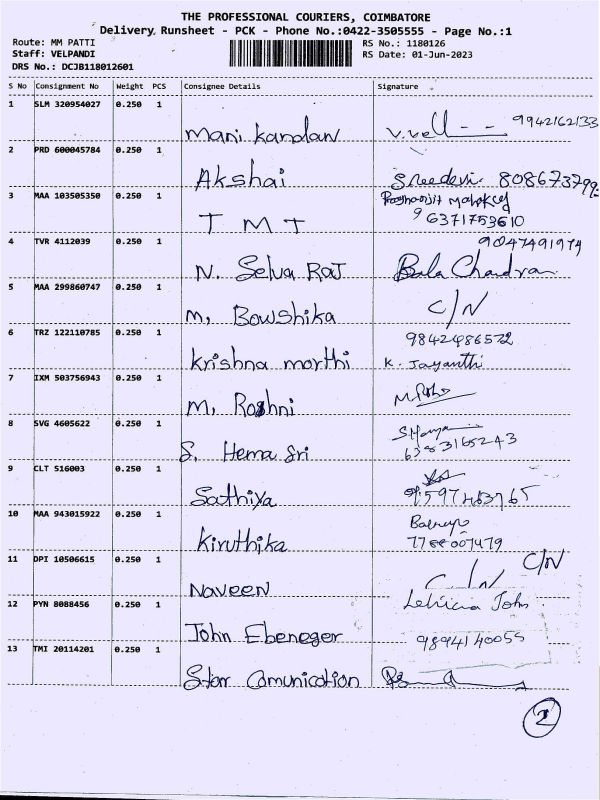 THE PROFESSIONAL COURIERS, COIMBATORE
Delivery Runsheet - PCK - Phone No.:0422-3505555 - Page No.:1
Route: MM PATTI
RS No.: 1180126
Staff: VELPANDI
RS Date: 01-Jun-2023
DRS No.: DCJB118012601
S No Consignment No Weight PCS Consignee Details Signature
1 SLM 320954027 0.250 1
9942162133
Mani kandan
2 PRD 600045784 0.250 1
Akshai Sreedevi 808673799
3 MAA 103505350 0.250 1
T M T 96371753610
4 TVR 4112039 0.250 1
9047491974
N. Selva Raj Bala Chandran
5 MAA 299860747 0.250 1
C/N
M. Bowshika
6 TRZ 122110785 0.250 1
9842486572
Krishna morthi K. Jayanthi
7 IXM 503756943 0.250 1
M. Roshni
8 SVG 4605622 0.250 1
S. Hema Sri 6383165243
9 CLT 516003 0.250 1
Sathiya
10 MAA 943015922 0.250 1
Kiruthika
11 DPI 10506615 0.250 1
C/N
Naveen C/N
12 PYN 8088456 0.250 1
John
John Ebeneger 9894140055
13 TMI 20114201 0.250 1
Starr Comunication
2